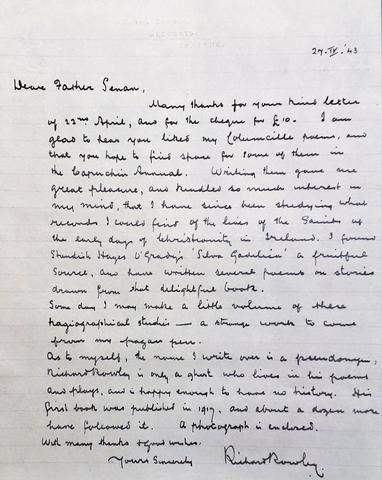 27.IV.'43
Dear Father Senan,
Many thanks for your kind letter
of 22nd April, and for the cheque for £10. I am
glad to hear you liked my Columcille poems, and
that you hope to find space for some of them in
the Capuchin Annual. Writing them gave me
great pleasure, and kindled so much interest in
my mind, that I have since been studying what
records I could find of the lives of the Saints of
the early days of Christianity in Ireland. I found
Standish Hayes O'Grady's 'Silva Gadelica' a fruitful
source, and have written several poems on stories
drawn from that delightful book.
Some day I may make a little volume of these
hagiographical studies — a strange work to come
from my pagan pen.
As to myself, the name I write over is a pseudonym,
Richard Rowley is only a ghost who lives in his poems
and plays, and is happy enough to have no history. His
first book was published in 1917, and about a dozen more
have followed it. A photograph is enclosed.
With many thanks & good wishes.
Yours Sincerely
Richard Rowley.